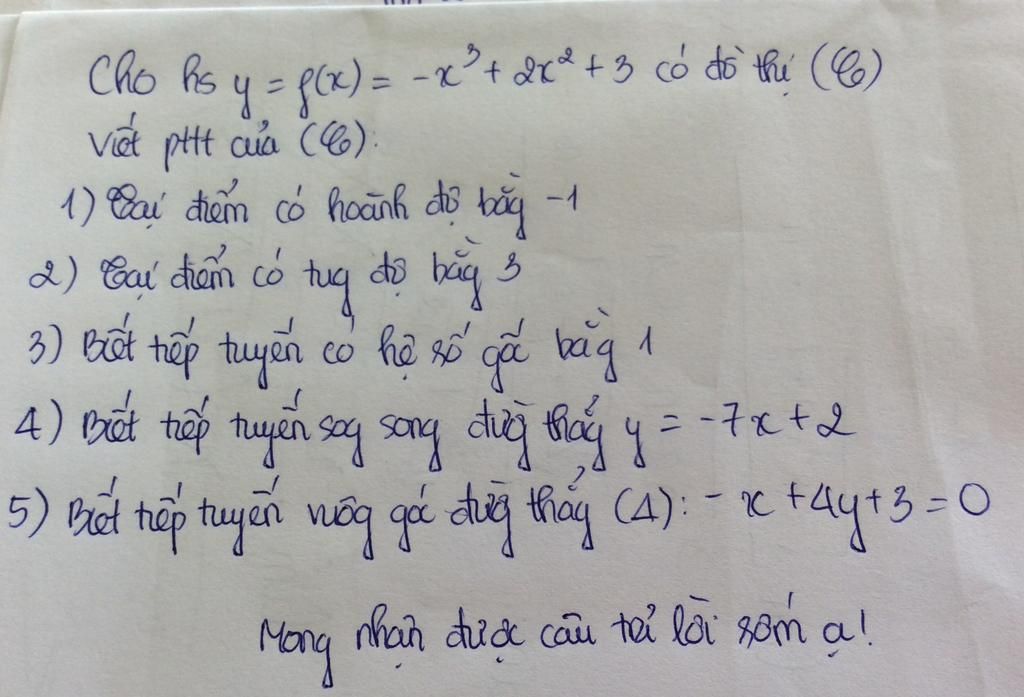 Cho hs y = f(x) = -x³ + 2x² + 3 có đồ thị (C)
Viết pttt của (C):
1) Tại điểm có hoành độ bằg -1
2) Tại điểm có tug độ bằg 3
3) Biết tiếp tuyến có hệ số góc bằg 1
4) Biết tiếp tuyến sog song đườg thẳg y = -7x + 2
5) Biết tiếp tuyến vuôg góc đườg thẳg (Δ): -x + 4y + 3 = 0
Mong nhận được câu trả lời sớm ạ!